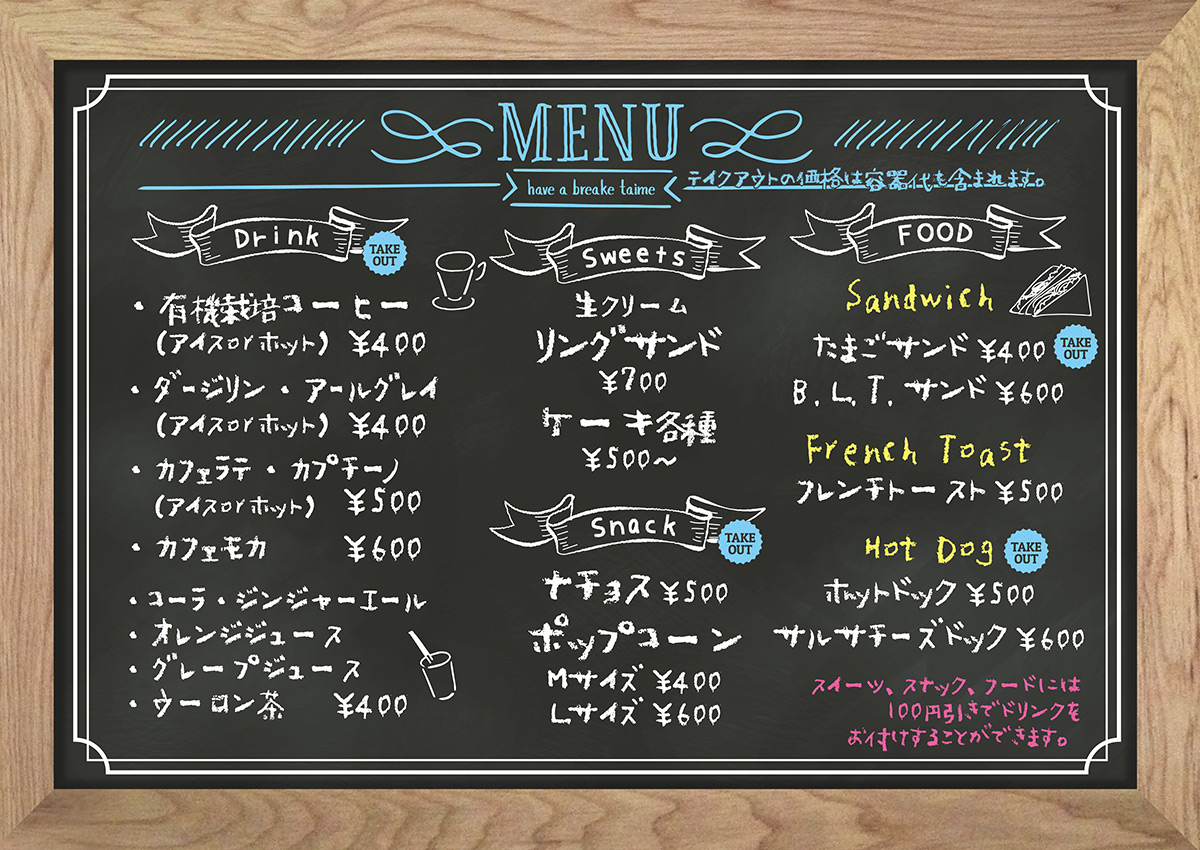 MENU
have a breake taime
テイクアウトの価格は容器代も含まれます。
Drink
TAKE OUT
・有機栽培コーヒー
(アイスorホット) ¥400
・ダージリン・アールグレイ
(アイスorホット) ¥400
・カフェラテ・カプチーノ
(アイスorホット) ¥500
・カフェモカ ¥600
・コーラ・ジンジャーエール
・オレンジジュース
・グレープジュース
・ウーロン茶 ¥400
Sweets
生クリーム
リングサンド
¥700
ケーキ各種
¥500〜
Snack
TAKE OUT
ナチョス ¥500
ポップコーン
Mサイズ ¥400
Lサイズ ¥600
FOOD
Sandwich
たまごサンド ¥400
TAKE OUT
B.L.T.サンド ¥600
French Toast
フレンチトースト ¥500
Hot Dog
TAKE OUT
ホットドック ¥500
サルサチーズドック ¥600
スイーツ、スナック、フードには
100円引きでドリンクを
お付けすることができます。